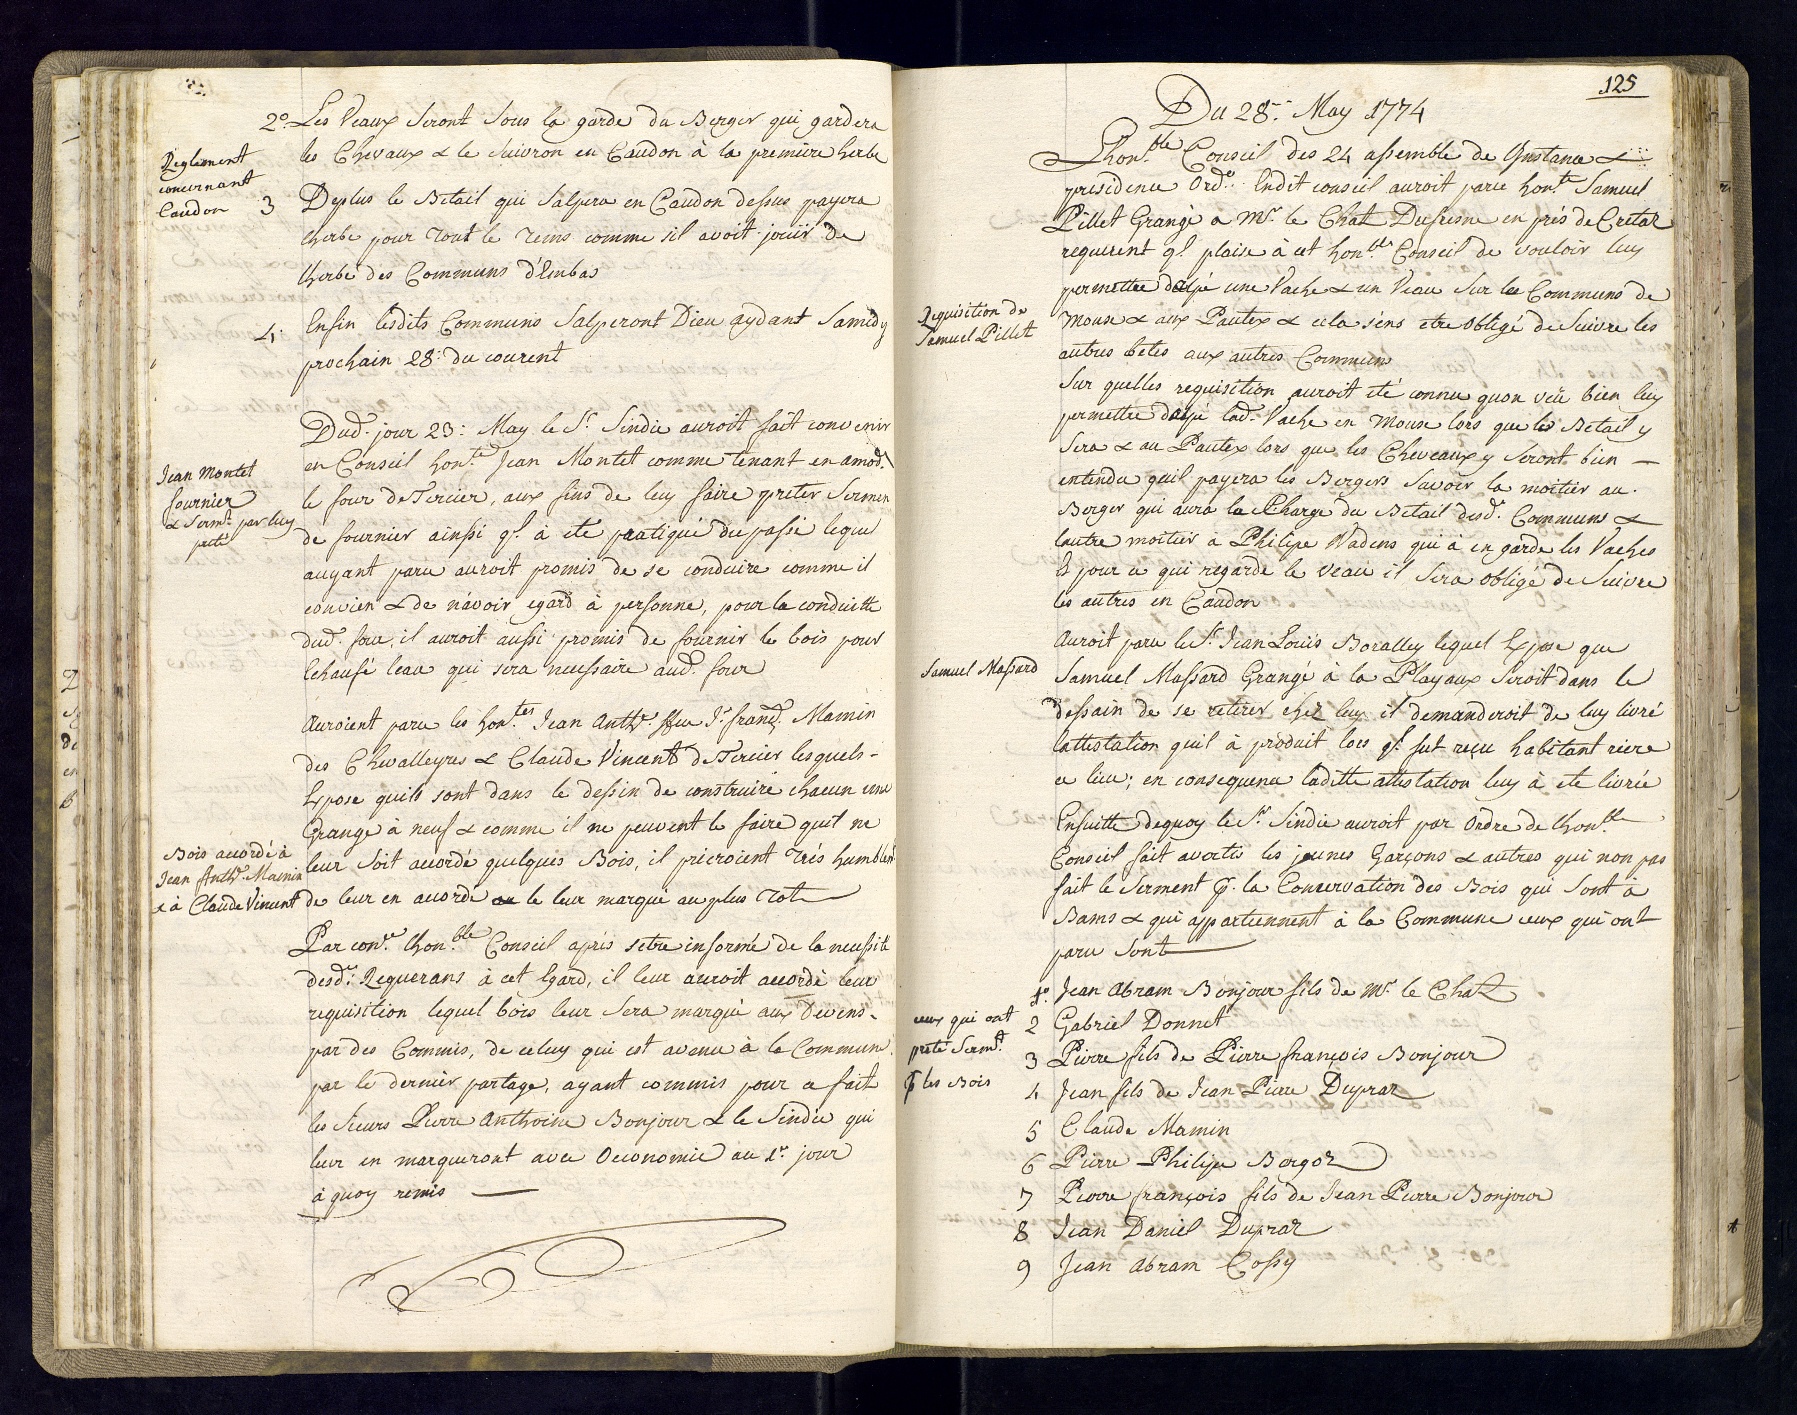 2.° Les Veaux Seront Sous la garde du Berger qui gardera
les Chevaux & le Suivron en Caudon à la premiere herbe
Reglement
concernant
Caudon
3 Deplus le Betail qui Salpera en Caudon dessus payera
Lherbe pour tout le tems comme sil avoit jouir de
Lherbe des Communs d'Embas
4. Enfin lesdits Communs Salperont Dieu aydant Samedy
prochain 28: du courent
Dud. jour 23: May le Sr. Sindic auroit fait convenir
en Conseil hon.te Jean Montet comme tenant en amod.
le four de Tercier, aux fins de luy faire preter Sermen
de fournier ainssi q.l à ete pratiqué du passé lequel
auyant paru auroit promis de se conduire comme il
convien & de n'avoir egard à personne, pour la conduitte
dud. four, il auroit aussi promis de fournir le bois pour
Lehausé leau qui sera necessaire aud. four
Jean Montet
fournier
& Serm.t par luy
preté
Auroient paru les hon.tes Jean Anth.e ffeu Jn. franç. Mamin
des Chevalleyres & Claude Vincent de Tercier lesquels -
Expose quils sont dans le dessin de construire chacun une
Grange à neuf & comme il ne peuvent le faire quil ne
leur Soit accordé quelques Bois, il prieroient très humblent
de leur en accordé & le leur marqué au plus tot
Bois accordé à
Jean Anth.e Mamin
& à Claude Vincent
Par con.ce Lhon.ble Conseil après setre informé de la necessité
desd. Requerans à cet Egard, il leur auroit accordé leur
requisition lequel bois leur Sera marqué aux Devens -
par des Commis, de celuy qui est avenu à la Commune
par le dernier partage, ayant commis pour ce fait
les Sieurs Pierre Anthoine Bonjour & le Sindic qui
leur en marqueront avec Oeconomie au 1.er jour
à quoy remis
125
Du 28: May 1774
Lhon.ble Conseil des 24 assemblé de Instance &
presidence Ord.e Endit conseil auroit paru hon.te Samuel
Pillet Grangé a Mr. le Chat. Dufresne en prés de Cretaz
requerent q.l plaise à cet hon.ble Conseil de vouloir luy
permettre dalpé une Vache & un Veau Sur les Communs de
Mouse & aux Pautex & cela sens etre obligé de Suivre les
autres betes aux autres Communs
Requisition de
Samuel Pillet
Sur quelles requisition auroit eté connu quon veü bien luy
permettre dalpé lad. Vache en Mouse lors que le Betail y
Sera & au Pautex lors que les Cheveaux y Seront bien -
entendu quil payera les Bergers Savoir la moitier au
Berger qui aura la Charge du Betail desd. Communs &
lautre moitier à Philipe Wadens qui à en garde les Vaches
Et pour ce qui regarde le veau il Sera obligé de Suivre
les autres en Caudon
Auroit paru le Sr. Jean Louis Boralley lequel Expose que
Samuel Massard Grangé à la Playaux Seroit dans le
dessain de se retirer chez luy il demanderoit de luy livré
lattestation quil à produit lors q.l fut reçu habitant riere
ce lieu; en consequence laditte attestation luy à ete livrée
Samuel Massard
Ensuitte dequoy le Sr. Sindic auroit par Ordre de Lhon.ble
Conseil fait avertis les jeunes Garçons & autres qui non pas
fait le Serment p. la Conservation des Bois qui Sont à
Bams & qui appartiennent à la Commune ceux qui ont
paru sont
1.° Jean Abram Bonjour fils de Mr. le Chat
ceux qui ont
preté Serm.t
p les Bois
2 Gabriel Donnet
3 Pierre fils de Pierre françois Bonjour
4 Jean fils de Jean Pierre Dupraz
5 Claude Mamin
6 Pierre Philipe Bergoz
7 Pierre françois fils de Jean Pierre Bonjour
8 Jean Daniel Dupraz
9 Jean Abram Cossy